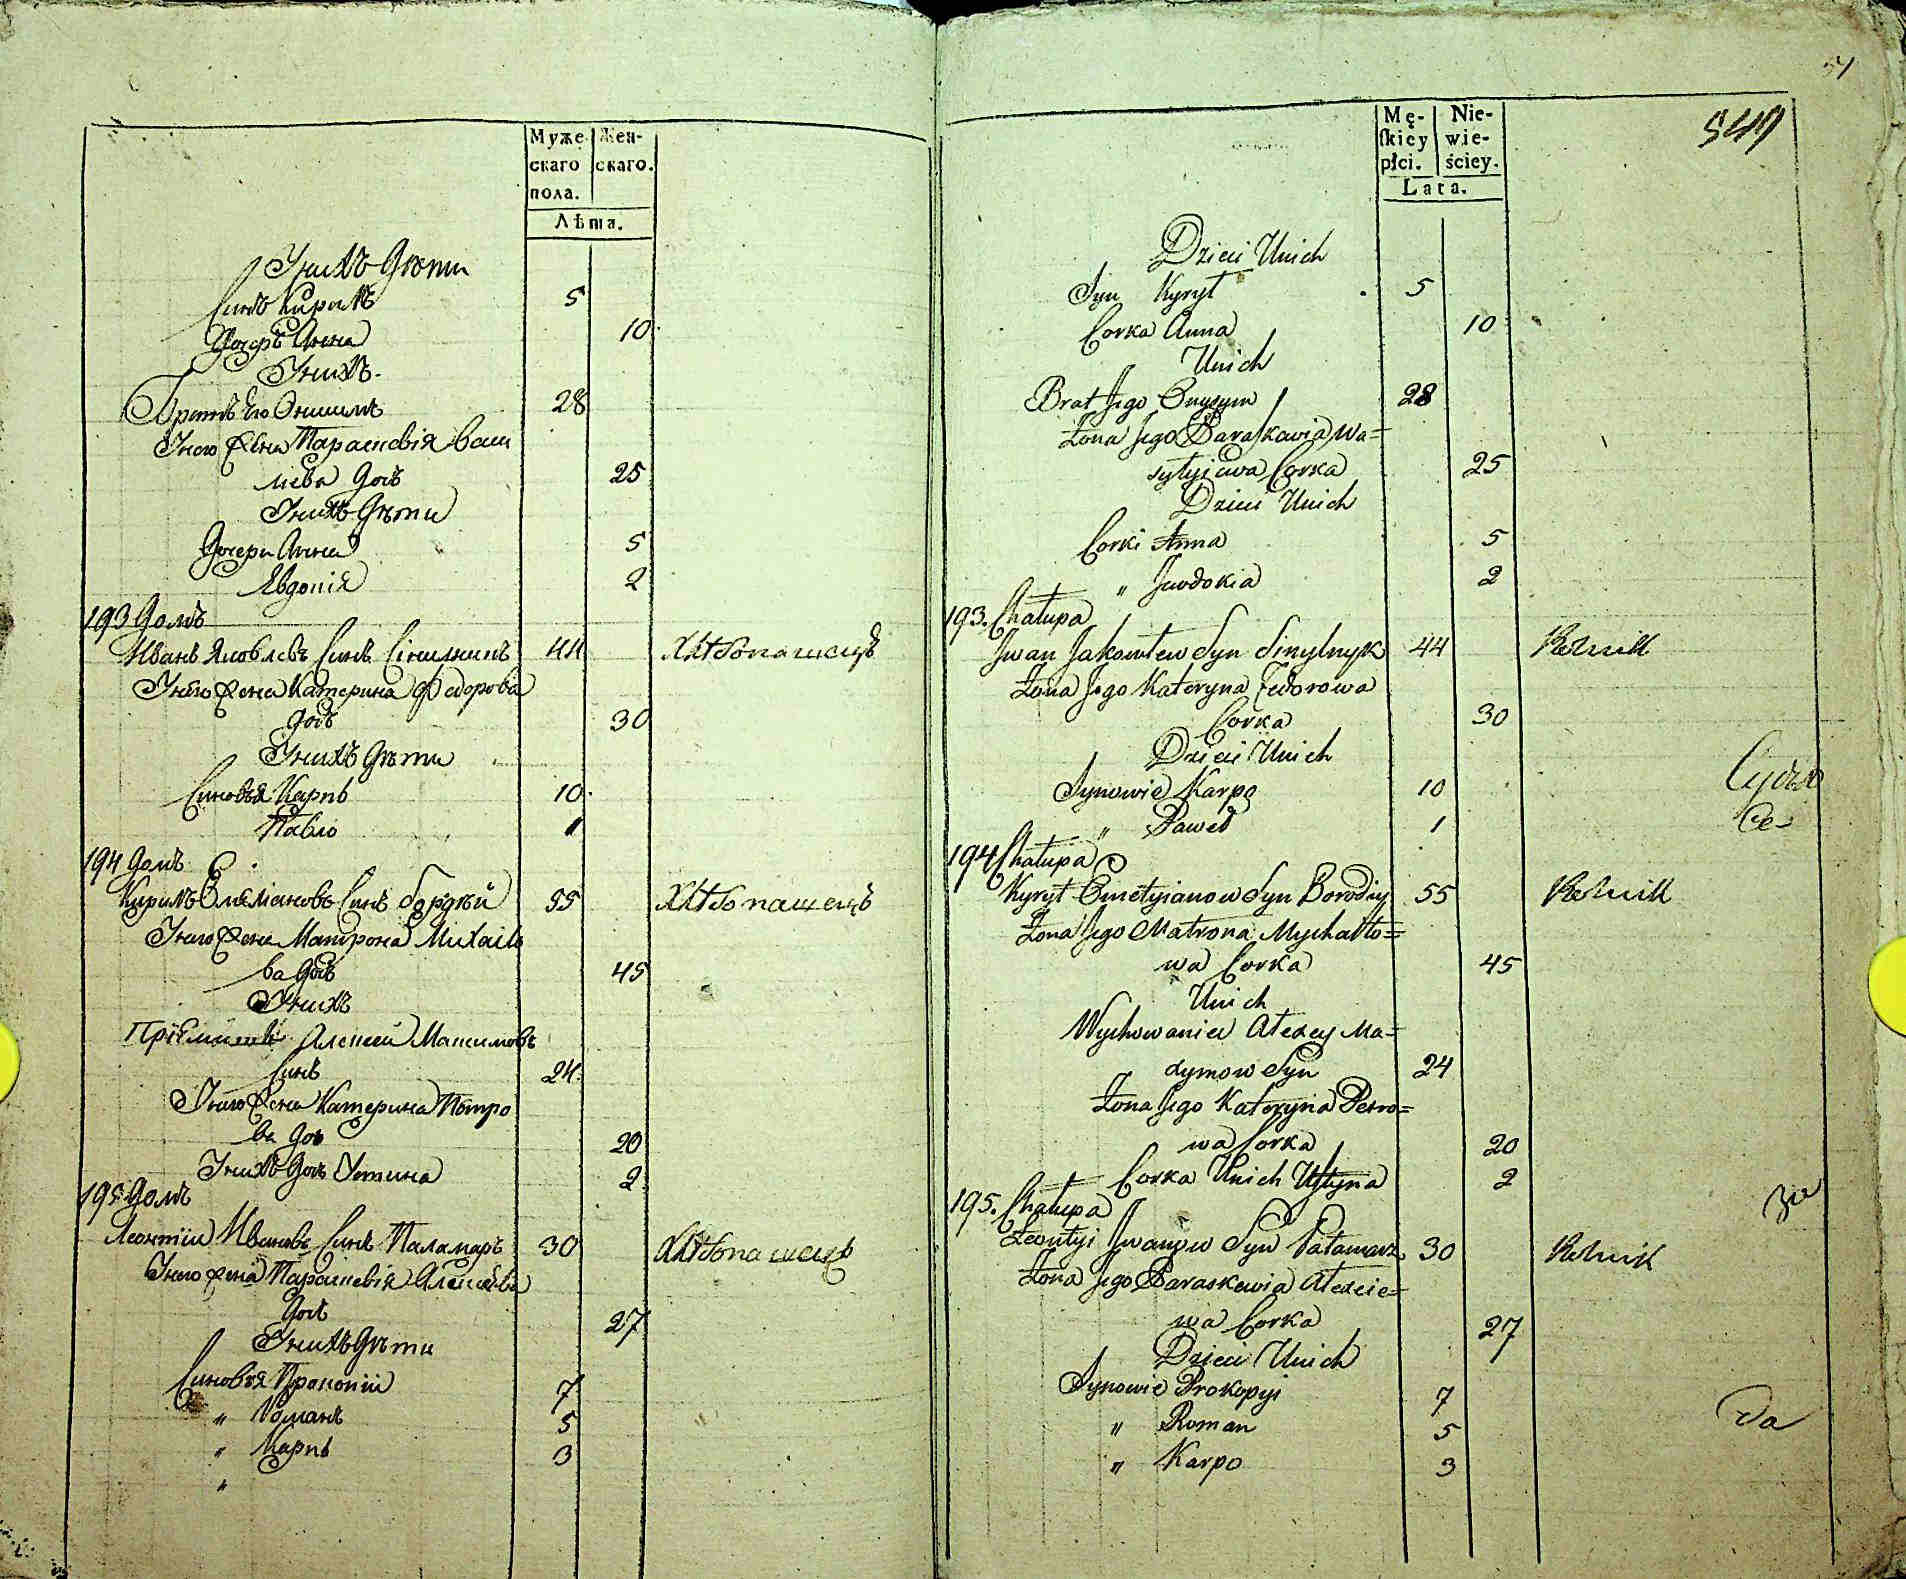 Муже-
скаго
пола.
Жен-
скаго.
Лѣта.
У нихъ Дѣти
Синъ Кирилъ 5
Дочеръ Анна 10
У нихъ
Братъ Его Онисимъ 28
У него Жена Параскевія Васи
лиева Дочь 25
У нихъ Дѣти
Дочери Анна 5
Явдокія 2
193 Домъ
Иванъ Яковлевъ Синъ Сінилникъ 44 Хлѣбопашецъ
У него Жена Катерина Федорова
Дочь 30
У нихъ Дѣти
Синовья Карпъ 10
Павло 1
194 Домъ
Кирилъ Омеляновъ Синъ Бородѣй 55 Хлѣбопашецъ
У него Жена Матрона Михайло
ва Дочь 45
У нихъ
Пріемишъ Алексей Максимовъ
Синъ 24
У него Жена Катерина Петро
ва Дочь 20
У нихъ Дочь Устина 2
195 Домъ
Леонтіи Ивановъ Синъ Паламаръ 30 Хлѣбопашецъ
У него Жена Параскевія Алексѣева
Дочь 27
У нихъ Дѣти
Синовья Прокопіи 7
" Романъ 5
" Карпъ 3
"
51
547
Mę-
ſkiey
płci.
Nie-
wie-
ściey.
Lata.
Dzieci U nich
Syn Kyrył 5
Corka Anna 10
U nich
Brat Jego Onysym 28
Żona Jego Paraskawia Wa=
syłyjewa Corka 25
Dzieci U nich
Corki Anna 5
" Jewdokia 2
193. Chałupa
Jwan Jakowlew Syn Sinylnyk 44 Rolnik
Żona Jego Kateryna Fedorowa
Corka 30
Dzieci U nich
Synowie Karpo 10
" Paweł 1
194 Chałupa
Kyrył Omelyianow Syn Borodiy 55 Rolnik
Żona Jego Matrona Mychaiło=
wa Corka 45
U nich
Wychowaniec Alexey Ma=
xymow Syn 24
Żona Jego Kateryna Petro=
wa Corka 20
Corka U nich Ustyna 2
195. Chałupa
Leontyi Jwanow Syn Pałamarz 30 Rolnik
Żona Jego Paraskewia Alexie=
wa Corka 27
Dzieci U nich
Synowie Prokopyi 7
" Roman 5
" Karpo 3
Судья